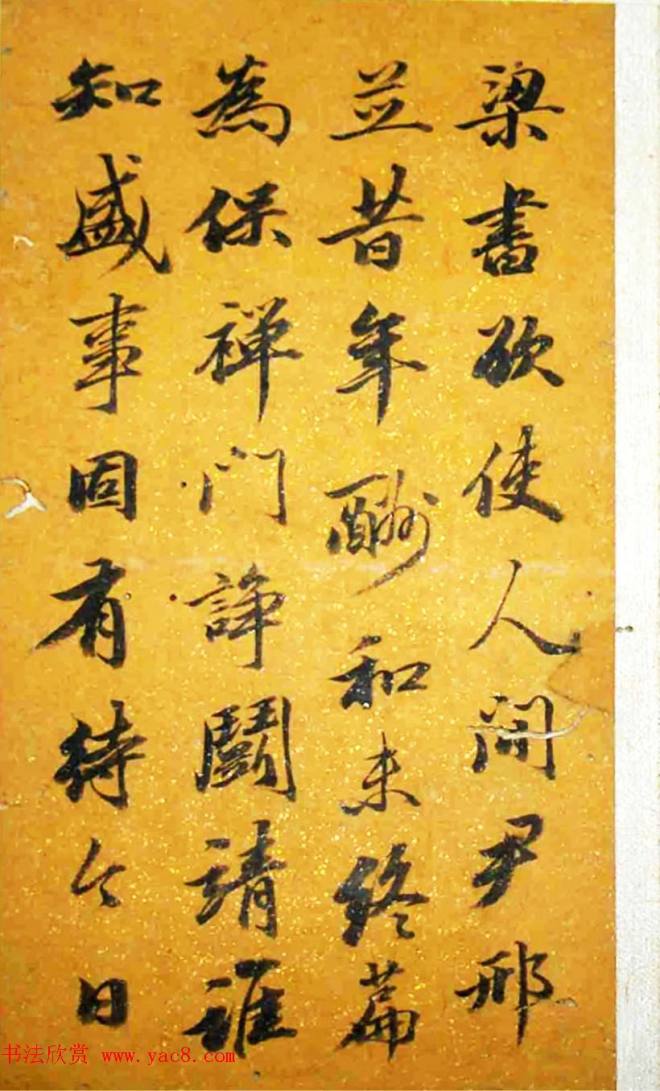 梁書欲使人間尹邢
並昔年酬和未終篇
為保禪門諍鬭請誰
知盛事固有待今日
书法欣赏 www.yac8.com